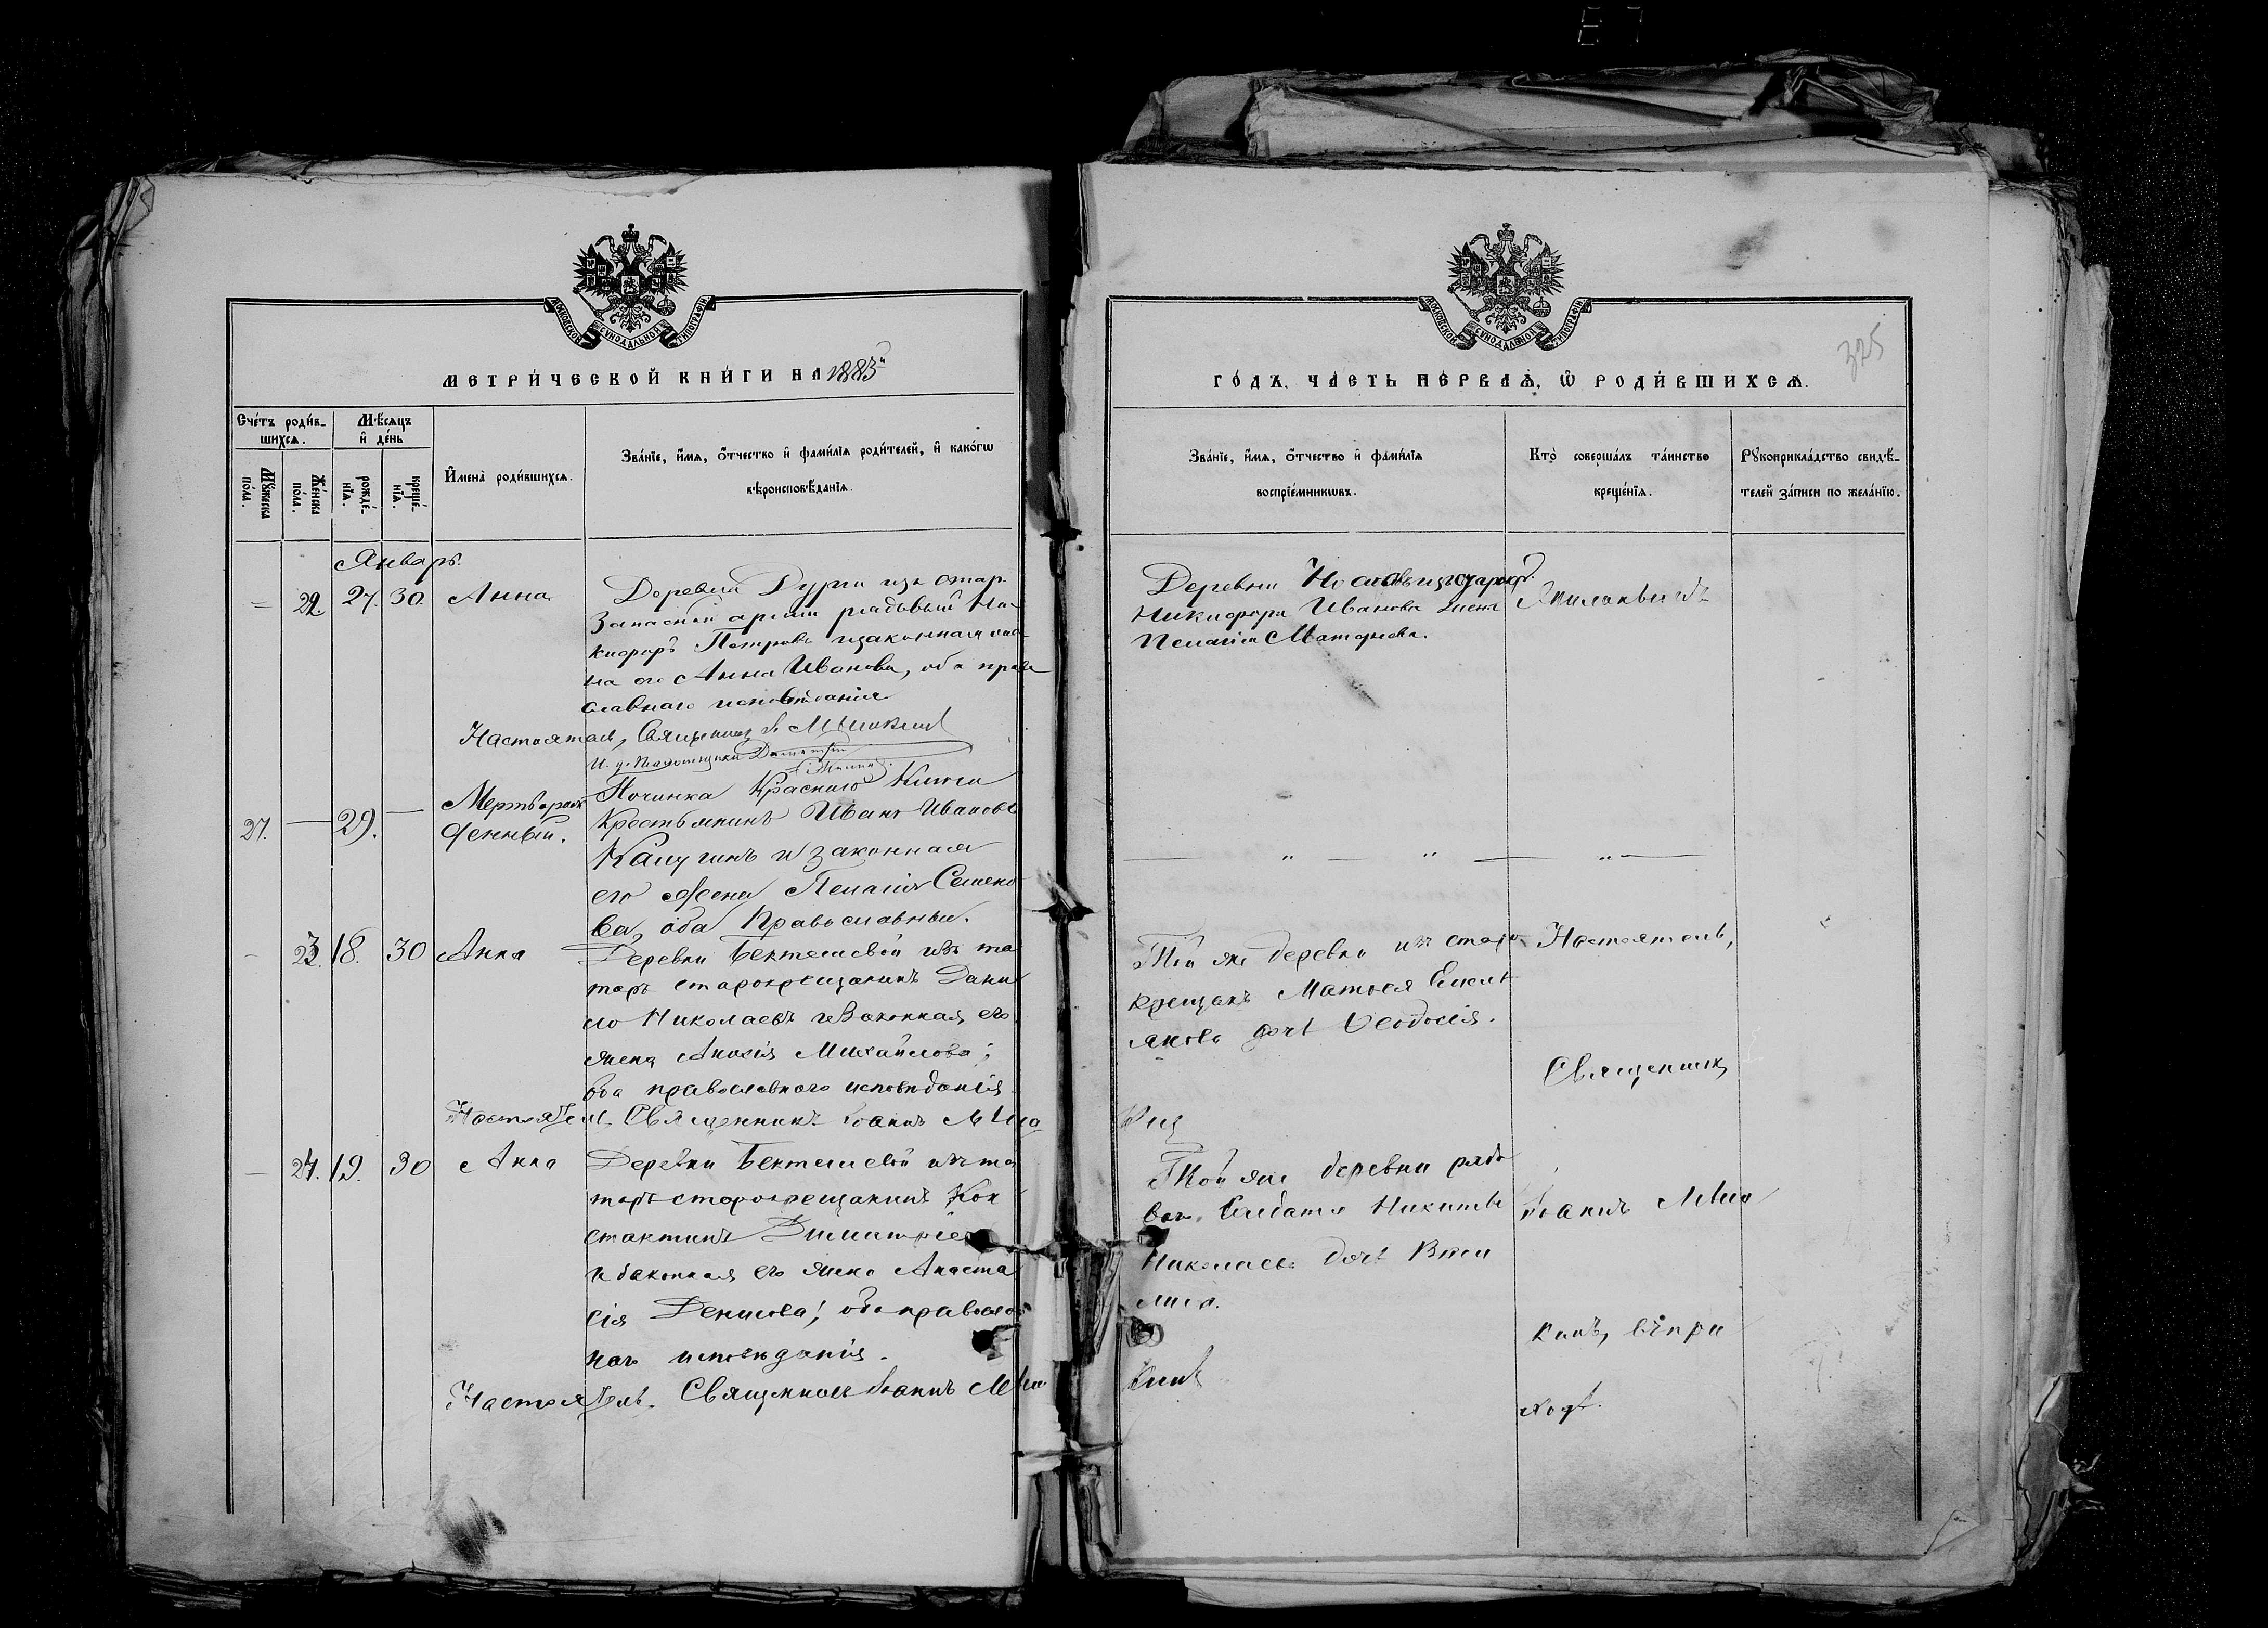 МОСКОВСКОЙ СУНОДАЛЬНОЙ ТИПОГРАФІИ
МЕТРИ́ЧЕСКОЙ КНИ́ГИ НА 1883й
Сче́тъ роди́в-
шихсѧ.
Мꙋ́жеска
по́ла.
Же́нска
по́ла.
Мѣ́сѧцъ
и҆ де́нь
рожде́-
нїѧ.
креще́-
нїѧ.
И҆мена̀ роди́вшихсѧ.
Зва́нїе, и҆́мѧ, ѻ҆́тчество и҆ фами́лїѧ роди́телей, и҆ како́гѡ
вѣроисповѣ́данїѧ.
Январь.
22. 27. 30. Анна
Деревни Дурги изъ стар.
запасной арміи рядовый Ни-
кифоръ Петровъ изаконная же-
на его Анна Иванова, оба право
славнаго исповѣданія
Настоятель, Священникъ
27. — 29. — Мертворож
денный.
Починка Краснаго Ключа
Крестьянинъ Иванъ Ивановъ
Калугинъ и законная
его жена Пелагія Семено
ва, оба Православные.
— 23. 18. 30 Анна
Деревни Бектешевой изъ та
таръ старокрещанинъ Дани
ло Николаевъ и законная его
жена Михайлова;
оба православного исповѣданія.
Настоятель, Священникъ Іоаннъ
— 24. 19. 30 Анна
Деревни Бектешевой изъ та
таръ старокрещанинъ Кон
стантинъ Димитріевъ
и законная его жена Анаста
сія Денисова; оба православ
наго исповѣданія.
Настоятель. Священникъ Іоаннъ
МОСКОВСКОЙ СУНОДАЛЬНОЙ ТИПОГРАФІИ
325
ГО́ДЪ, ЧА́СТЬ ПЕ́РВАѦ, Ѡ҆ РОДИ́ВШИХСѦ.
Зва́нїе, и҆́мѧ, ѻ҆́тчество и҆ фами́лїѧ
воспрїе́мникѡвъ.
Кто̀ соверша́лъ та́инство
креще́нїѧ.
Рꙋкоприкла́дство свидѣ́-
телей за́писи по жела́нїю.
Деревни
Никифора Иванова жена
Пелагія Матфеева.
— „ „ — „ —
Той же деревни изъ старо
крещанъ Матвея Емель
янова дочь Ѳеодосія.
Настоятель,
Священник
Той же деревни рядо
ваго Солдата Никиты
Николаева дочь
Іоаннъ
кинъ, въ при
ход.